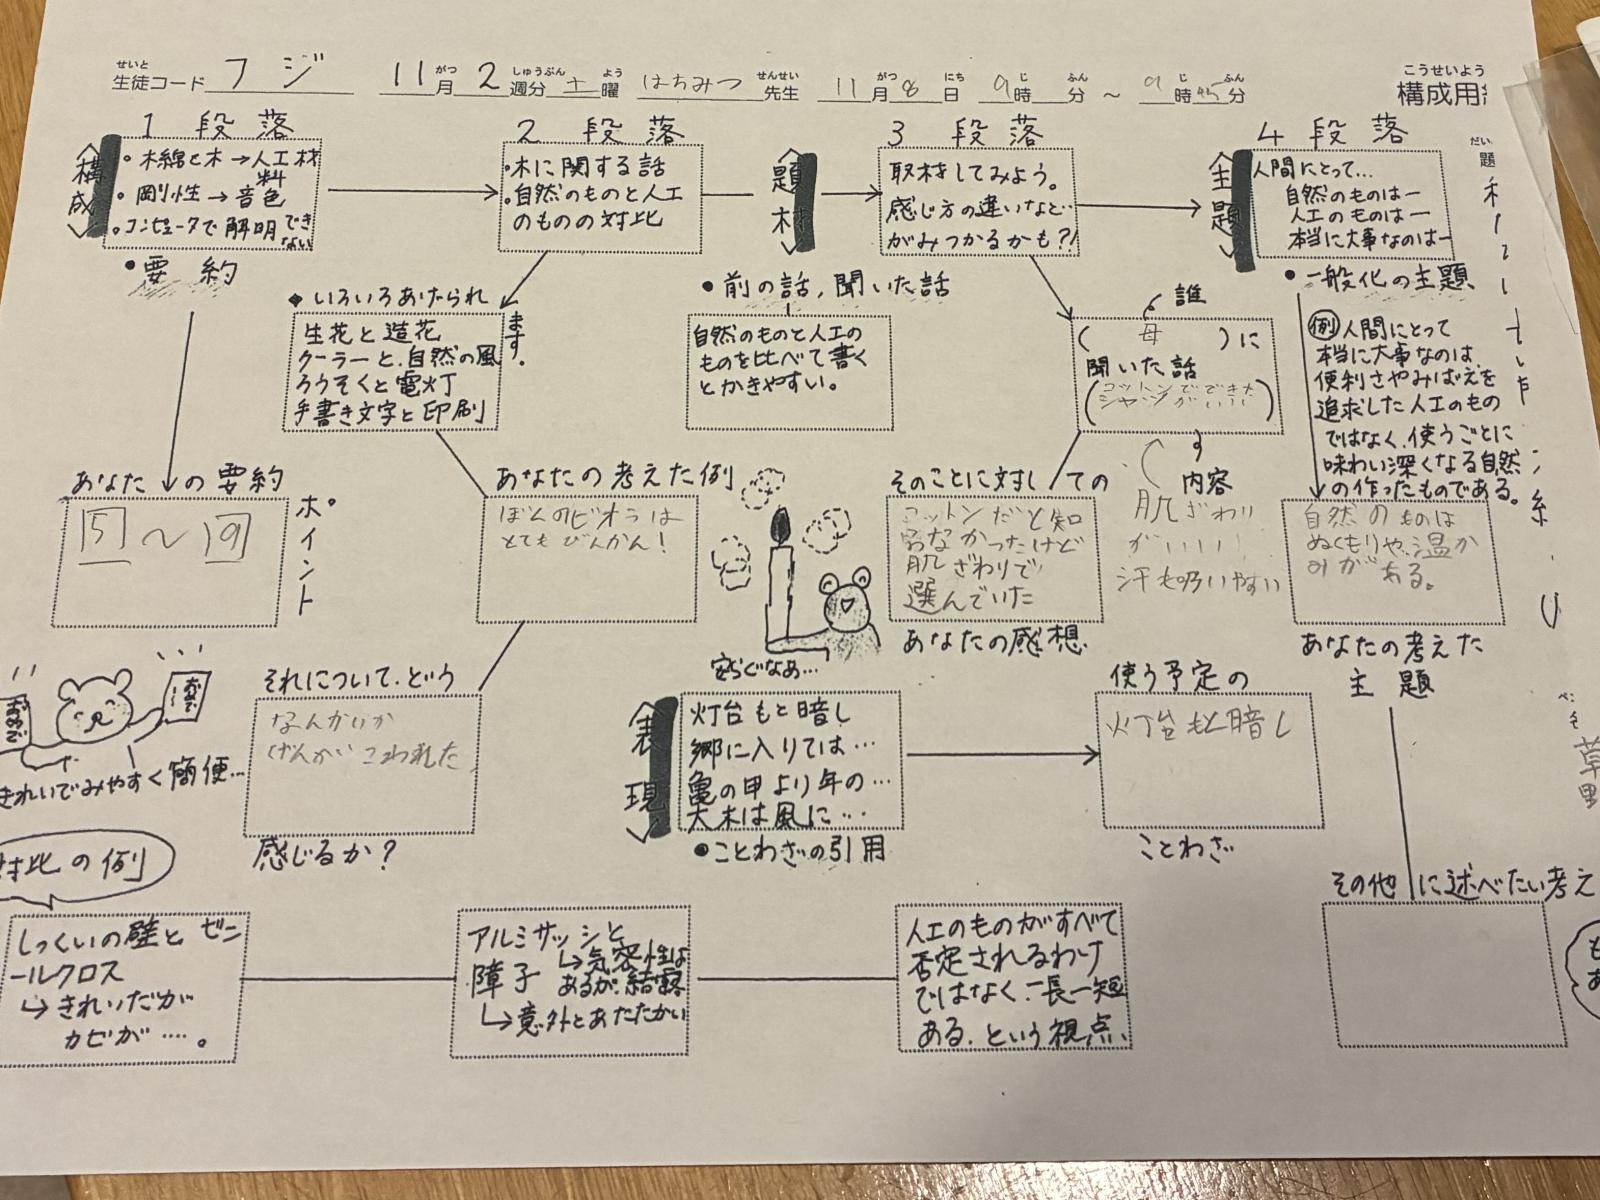 せいと がつ しゅうぶん よう せんせい がつ にち じ ふん じ ふん こうせいよう
生徒コード フジ 11月 2週分 土曜 はちみつ先生 11月8日 9時 分 ～ 9時45分 構成用
1段落
〈構成〉
・木綿と木→人工材料
・剛性→音色
・コンピュータで解明できない
●要約
あなたの要約
5～9
ポイント
2段落
・木に関する話
・自然のものと人工のものの対比
◆いろいろあげられます。
生花と造花
クーラーと、自然の風
ろうそくと電灯
手書き文字と印刷
あなたの考えた例
ぼくのビオラは
とてもびんかん!
それについて、どう
なんかいか
げんがいこわれた
感じるか?
〈題材〉
●前の話, 聞いた話
自然のものと人工の
ものを比べて書く
とかきやすい。
3段落
取材してみよう。
感じ方の違いなど…
がみつかるかも?!
誰
(母)に
聞いた話
(コットンでできた
シャツがいい)
内容
肌ざわり
がいい!
汗も吸いやすい
そのことに対しての
コットンだと知
らなかったけど
肌ざわりで
選んでいた
あなたの感想
〈主題〉
4段落
人間にとって…
自然のものは―
人工のものは―
本当に大事なのは―
●一般化の主題
例 人間にとって
本当に大事なのは
便利さやみばえを
追求した人工のもの
ではなく、使うごとに
味わい深くなる自然
の作ったものである。
自然のものは
ぬくもりや、温か
みがある。
あなたの考えた
主題
その他に述べたい考え
だい
題
安らぐなあ…
きれいでみやすく簡便…
〈表現〉
灯台もと暗し
郷に入りては…
亀の甲より年の…
大木は風に…
●ことわざの引用
使う予定の
灯台もと暗し
ことわざ
対比の例
しっくいの壁とビニ
ールクロス
↳きれいだが
カビが….。
アルミサッシと
↳気密性は
あるが、結露
障子
↳意外とあたたかい
人工のものがすべて
否定されるわけ
ではなく、一長一短
ある、という視点、